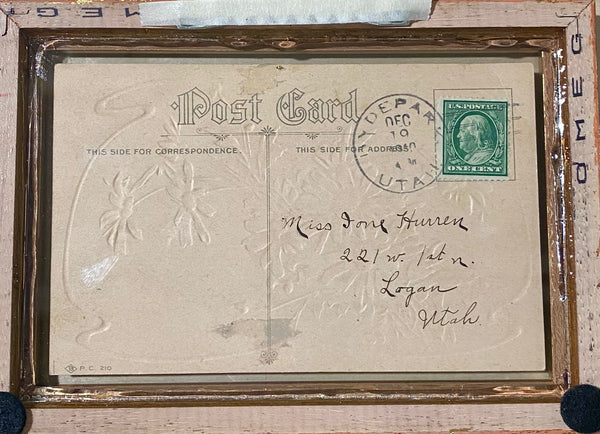 Post Card
THIS SIDE FOR CORRESPONDENCE.
THIS SIDE FOR ADDRESS
HYDE PARK
DEC
19
1910
AM
UTAH
U.S. POSTAGE
ONE CENT
Miss Ione Hurren
221 w. 1st n.
Logan
Utah.
P.C. 210
OMEG